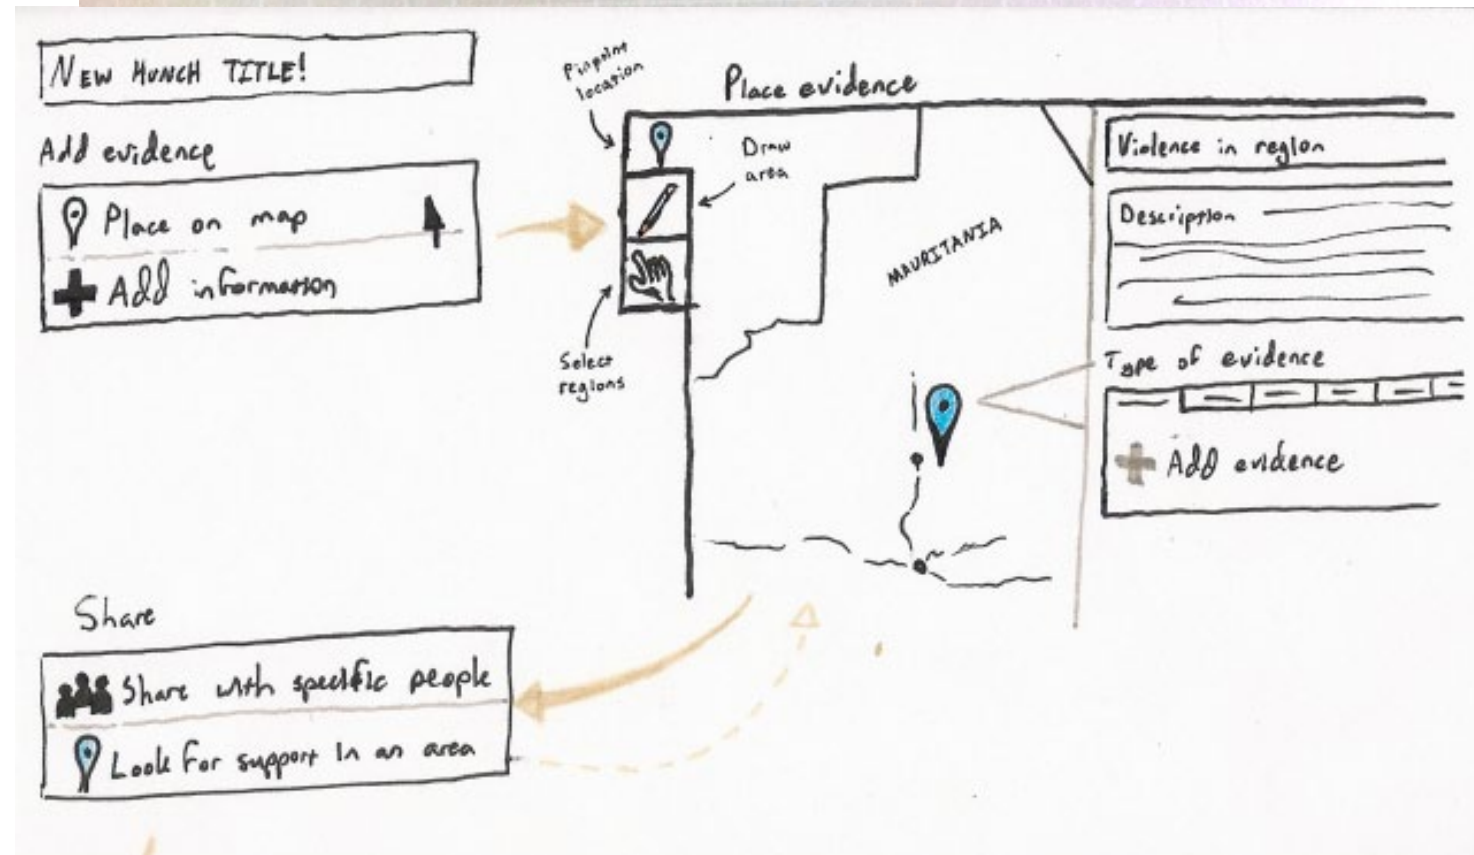 NEW HUNCH TITLE!
Add evidence
Place on map
Add information
Pinpoint
location
Place evidence
Draw
area
Select
regions
MAURITANIA
Violence in region
Description
Type of evidence
Add evidence
Share
Share with specific people
Look for support in an area